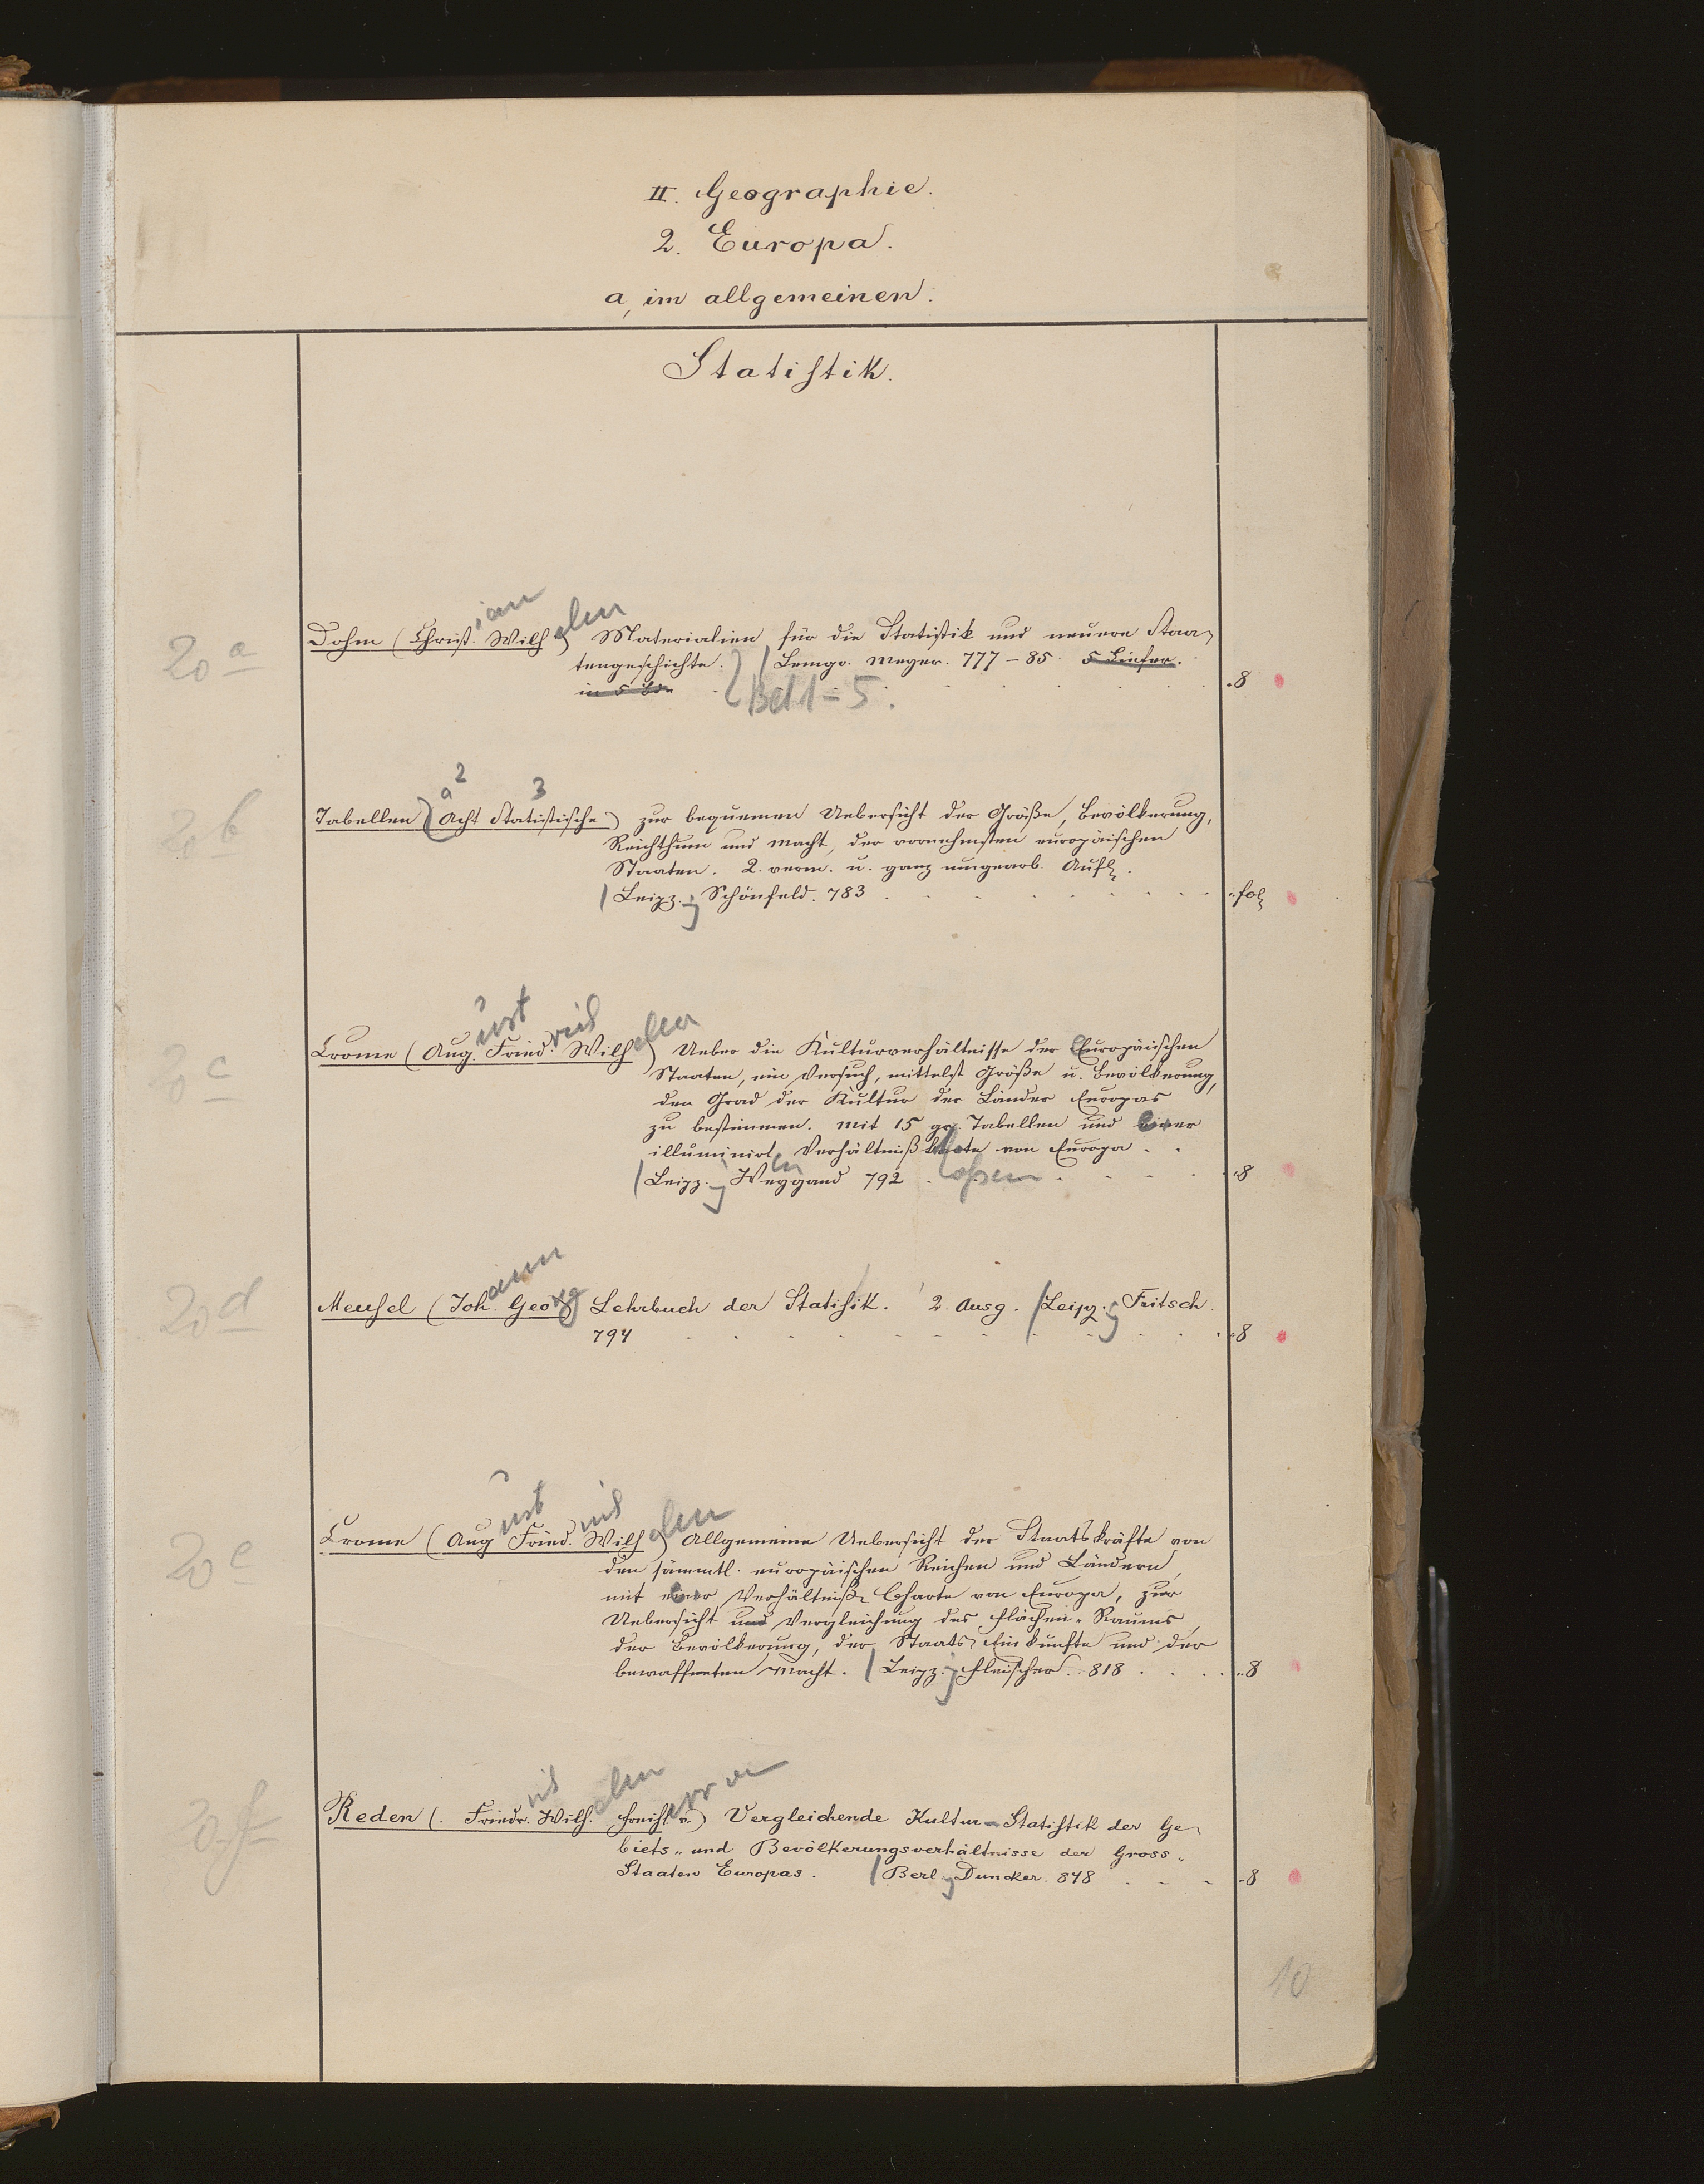 II. Geographie.
2. Europa.
a, im allgemeinen.
Statistik.
20 a
Dohm (Christ.ian Wilhelm) Materialien für die Statistik und neuere Staa-
tengeschichte. Lemgo. Meyer. 777-85. 5 Liefer.
in 5 Bdn Bd 1-5. 8
20 b
2 3
Tabellen (Acht Statistische) zur bequemen Uebersicht der Größe, Bevölkerung,
Reichthum und Macht, der vornehmsten europäischen
Staaten. 2. verm. u. ganz umgearb. Aufl.
Leipz. Schönfeld. 783 fol
20 c
Crome (August Friedrich Wilhelm) Ueber die Kulturverhältnisse der Europäischen
Staaten, ein Versuch, mittelst Größe u. Bevölkerung,
den Grad der Kultur der Länder Europas
zu bestimmen. Mit 15 gr. Tabellen und einer
illuminirt. Verhältniß Karte von Europa
Leipz. Weygand 792 8
20 d
Meusel (Johann Georg) Lehrbuch der Statistik. 2. Ausg. Leipz. Fritsch.
794 8
20 e
Crome (August Friedrich Wilhelm) Allgemeine Uebersicht der Staatskräfte von
den sämmtl. europäischen Reichen und Ländern,
mit einer Verhältniß-Charte von Europa, zur
Uebersicht und Vergleichung des Flächen-Raums,
der Bevölkerung, der Staats-Einkünfte und der
bewaffneten Macht. Leipz. Fleischer. 818 8
20 f
Reden (Friedrich Wilhelm Freiherr v.) Vergleichende Kultur-Statistik der Ge-
biets- und Bevölkerungsverhältnisse der Gross-
Staaten Europas. Berl. Duncker. 848 8
10